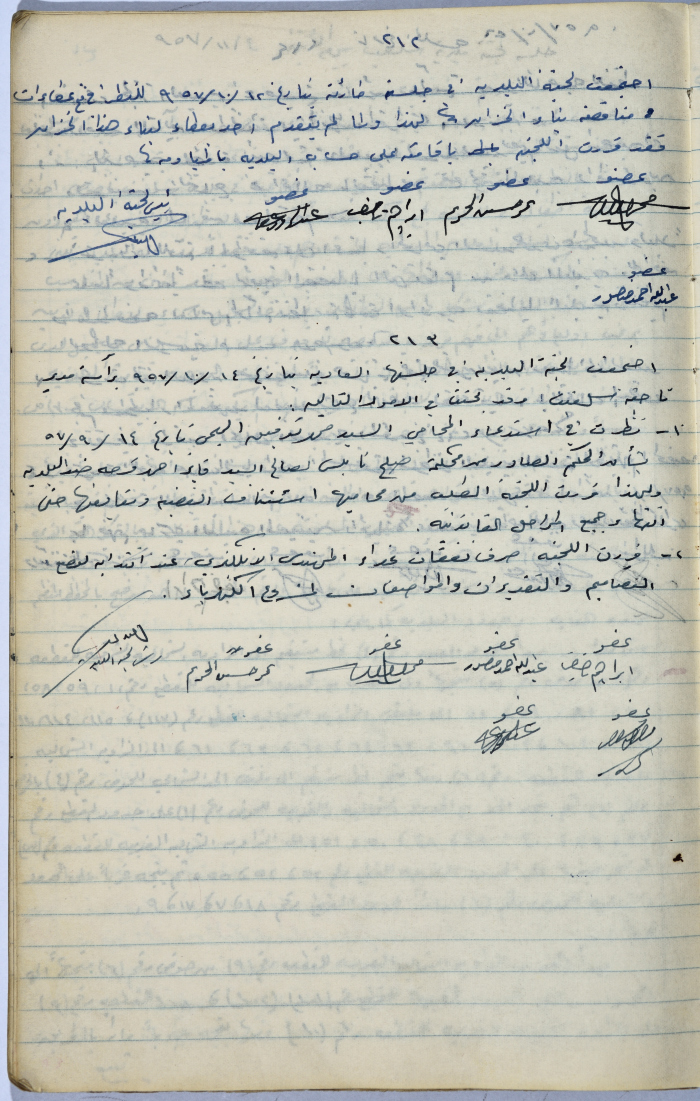 ٢١٢
اجتمعت لجنة البلدية في جلسة بتاريخ ١٢/١٠/٩٥٧ للنظر في فتح عطاءات
مناقصة بناء الخزانين ولما لم يتقدم أحد بعطاء لبناء هذا الخزان
فقد قررت اللجنة باقامته على حساب البلدية بالمياومة
عضو عضو عضو عضو رئيس لجنة البلدية
عمر حسين الحريم ابراهيم ضيف
عضو
عبدالله احمد منصور
٢١٣
اجتمعت لجنة البلدية في جلستها العادية بتاريخ ١٤/١٠/٩٥٧ برآسة مدير
ناحية سلفيت وقد بحثت في الامور التالية :
١- نظرت في استدعاء المحامي السيد بتاريخ ١٤/٩/٥٧
بشأن الحكم الصادر من محكمة صلح نابلس لصالح السيد فايز احمد ضد البلدية
ولهذا قررت اللجنة الطلب من محاميها استئناف القضية ومتابعتها حتى
انتهاء جميع المراحل القانونية .
٢- قررت اللجنة صرف نفقات غداء المهندس الانكليزي عند انتدابه لوضع
التصاميم والتقديرات والمواصفات لمشروع الكهرباء .
عضو عضو عضو عضو رئيس لجنة البلدية
ابراهيم ضيف عبدالله احمد منصور عمر حسين الحريم
عضو عضو